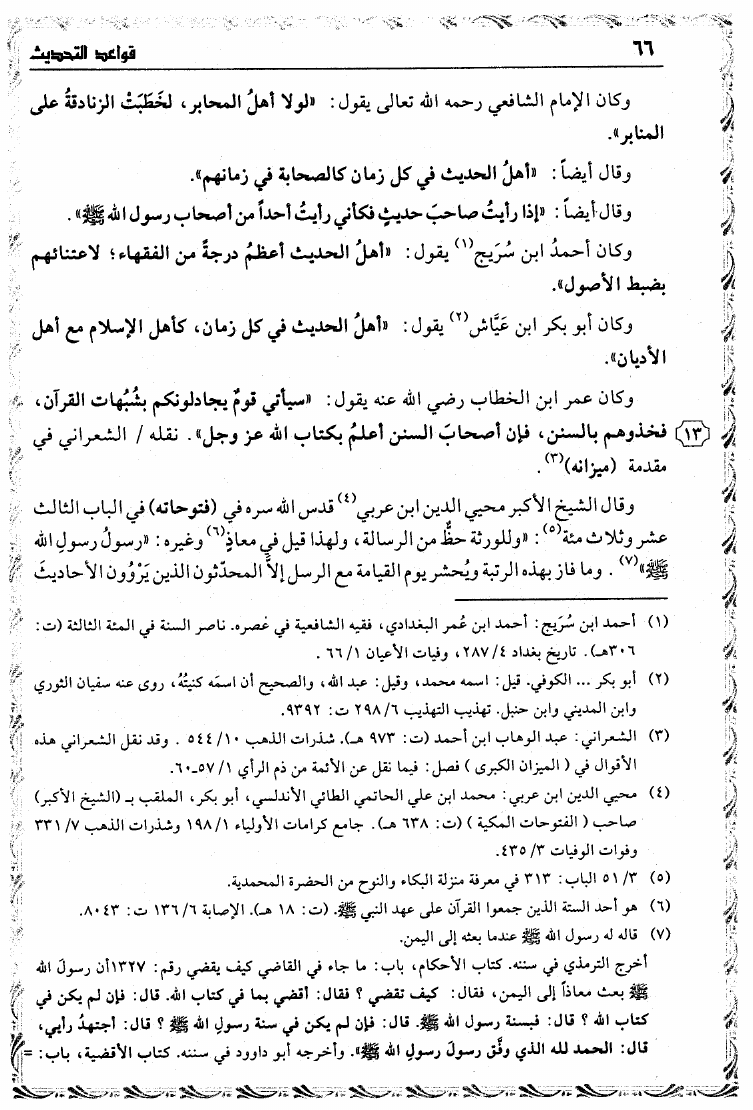 ٦٦
قواعد التحديث
وكان الإمام الشافعي رحمه الله تعالى يقول: «لولا أهلُ المحابر، لخَطَبَتْ الزنادقةُ على
المنابر».
وقال أيضاً: «أهلُ الحديث في كل زمان كالصحابة في زمانهم».
وقال أيضاً: «إذا رأيتُ صاحبَ حديثٍ فكأني رأيتُ أحداً من أصحاب رسول الله ﷺ».
وكان أحمدُ ابن سُرَيج(١) يقول: «أهلُ الحديث أعظمُ درجةً من الفقهاء؛ لاعتنائهم
بضبط الأصول».
وكان أبو بكر ابن عَيَّاش(٢) يقول: «أهلُ الحديث في كل زمان، كأهل الإسلام مع أهل
الأديان».
وكان عمر ابن الخطاب رضي الله عنه يقول: «سيأتي قومٌ يجادلونكم بشُبُهات القرآن،
فخذوهم بالسنن، فإن أصحابَ السنن أعلمُ بكتاب الله عز وجل». نقله / الشعراني في
١٣
مقدمة (ميزانه)(٣).
وقال الشيخ الأكبر محيي الدين ابن عربي(٤) قدس الله سره في (فتوحاته) في الباب الثالث
عشر وثلاث مئة(٥): «وللورثة حظٌّ من الرسالة، ولهذا قيل في معاذٍ(٦) وغيره: «رسولُ رسولِ الله
ﷺ»(٧). وما فاز بهذه الرتبة ويُحشر يوم القيامة مع الرسل إلاَّ المحدّثون الذين يَرْوُون الأحاديثَ
(١) أحمد ابن سُرَيج: أحمد ابن عُمر البغدادي، فقيه الشافعية في عصره. ناصر السنة في المئة الثالثة (ت:
٣٠٦هـ). تاريخ بغداد ٢٨٧/٤، وفيات الأعيان ٦٦/١.
(٢) أبو بكر ... الكوفي. قيل: اسمه محمد، وقيل: عبد الله، والصحيح أن اسمَه كنيتُهُ، روى عنه سفيان الثوري
وابن المديني وابن حنبل. تهذيب التهذيب ٢٩٨/٦ ت: ٩٣٩٢.
(٣) الشعراني: عبد الوهاب ابن أحمد (ت: ٩٧٣ هـ). شذرات الذهب ٥٤٤/١٠. وقد نقل الشعراني هذه
الأقوال في (الميزان الكبرى) فصل: فيما نقل عن الأئمة من ذم الرأي ٥٧/١ـ٦٠.
(٤) محيي الدين ابن عربي: محمد ابن علي الحاتمي الطائي الأندلسي، أبو بكر، الملقب بـ (الشيخ الأكبر)
صاحب (الفتوحات المكية) (ت: ٦٣٨ هـ). جامع كرامات الأولياء ١٩٨/١ وشذرات الذهب ٣٣١/٧
وفوات الوفيات ٤٣٥/٣.
(٥) ٥١/٣ الباب: ٣١٣ في معرفة منزلة البكاء والنوح من الحضرة المحمدية.
(٦) هو أحد الستة الذين جمعوا القرآن على عهد النبي ﷺ. (ت: ١٨ هـ). الإصابة ١٣٦/٦ ت: ٨٠٤٣.
(٧) قاله له رسول الله ﷺ عندما بعثه إلى اليمن.
أخرج الترمذي في سننه. كتاب الأحكام، باب: ما جاء في القاضي كيف يقضي رقم: ١٣٢٧أن رسولَ الله
ﷺ بعث معاذاً إلى اليمن، فقال: كيف تقضي؟ فقال: أقضي بما في كتاب الله. قال: فإن لم يكن في
كتاب الله؟ قال: فبسنة رسول الله ﷺ. قال: فإن لم يكن في سنة رسولِ الله ﷺ؟ قال: أجتهدُ رأيي،
قال: الحمد لله الذي وفَّق رسولَ رسولِ الله ﷺ». وأخرجه أبو داوود في سننه. كتاب الأقضية، باب: =